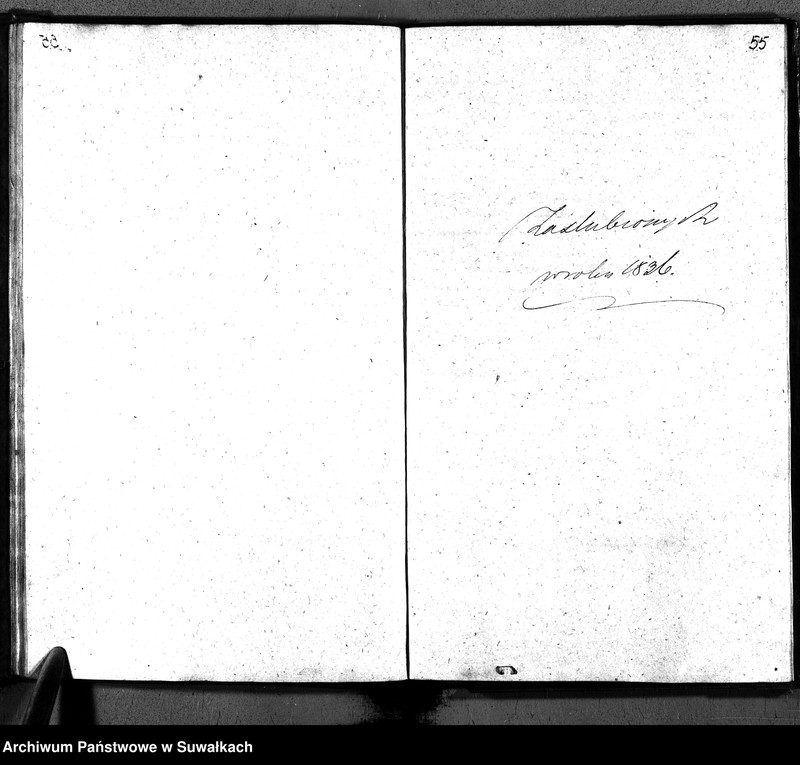 55
Zaślubionych
w roku 1836.
Archiwum Państwowe w Suwałkach